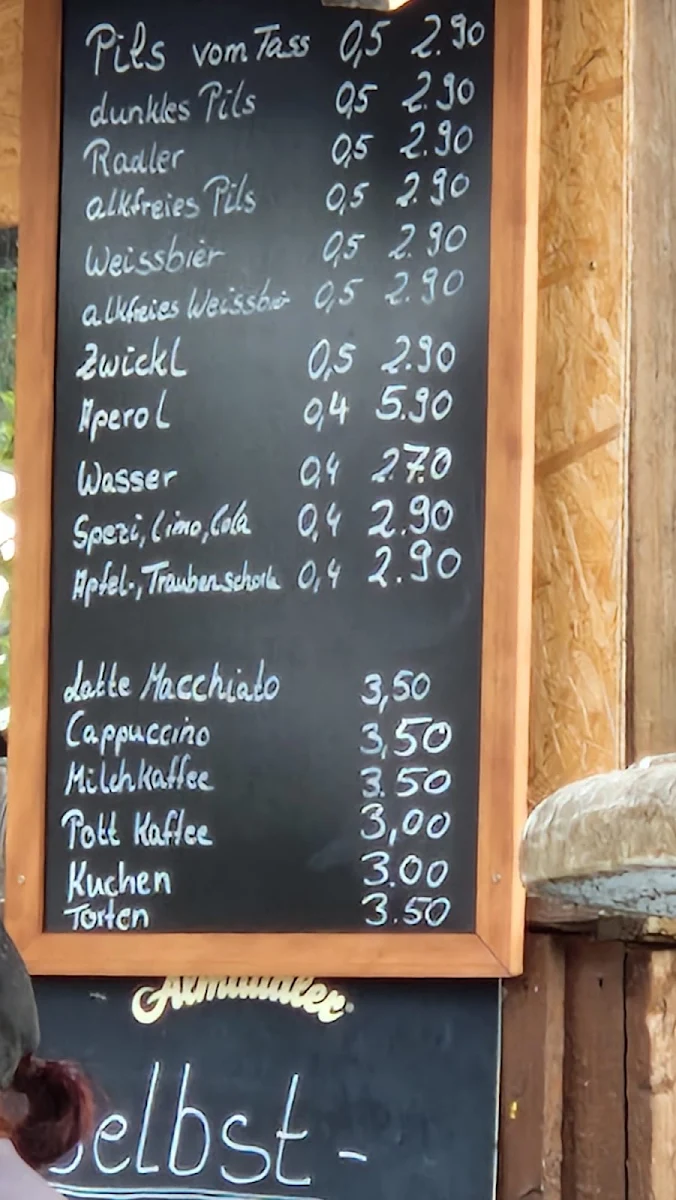 Pils vom Fass 0,5 2.90
dunkles Pils 0,5 2.90
Radler 0,5 2.90
alkfreies Pils 0,5 2.90
Weissbier 0,5 2.90
alkfreies Weissbier 0,5 2.90
Zwickl 0,5 2.90
Aperol 0,4 5.90
Wasser 0,4 2.70
Spezi, Limo, Cola 0,4 2.90
Apfel-, Traubenschorle 0,4 2.90
Latte Macchiato 3,50
Cappuccino 3,50
Milchkaffee 3.50
Pott Kaffee 3,00
Kuchen 3.00
Torten 3.50
Almdudler
Selbst-